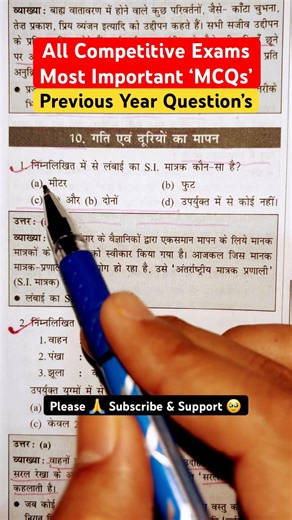 व्याख्या: बाह्य वातावरण में होने वाले कुछ परिवर्तनों, जैसे- काँटा चुभना,
तेज प्रकाश, प्रिय व्यंजन इत्यादि को उद्दीपन कहते हैं। सभी सजीव उद्दीपन
All Competitive Exams
Most Important ‘MCQs’
Previous Year Question’s
10. गति एवं दूरियों का मापन
1. निम्नलिखित में से लंबाई का S.I. मात्रक कौन-सा है?
(a) मीटर (b) फुट
(c) और (b) दोनों (d) उपर्युक्त में से कोई नहीं।
उत्तर:
व्याख्या: के वैज्ञानिकों द्वारा एकसमान मापन के लिये मानक
मात्रकों के को स्वीकार किया गया है। आजकल जिस मानक
मात्रक-प्रणाली हो रहा है, उसे ‘अंतर्राष्ट्रीय मात्रक प्रणाली’
(S.I. मात्रक)
• लंबाई का S.I.
2. निम्नलिखित
1. वाहन
2. पंखा :
3. झूला :
Please 🙏 Subscribe & Support 🥺
उपर्युक्त युग्मों में
(a)
(c) केवल 2
उत्तर: (a)
व्याख्या: वाहनों
सरल रेखा के
कहलाती है।
• जब कोई वस्तु